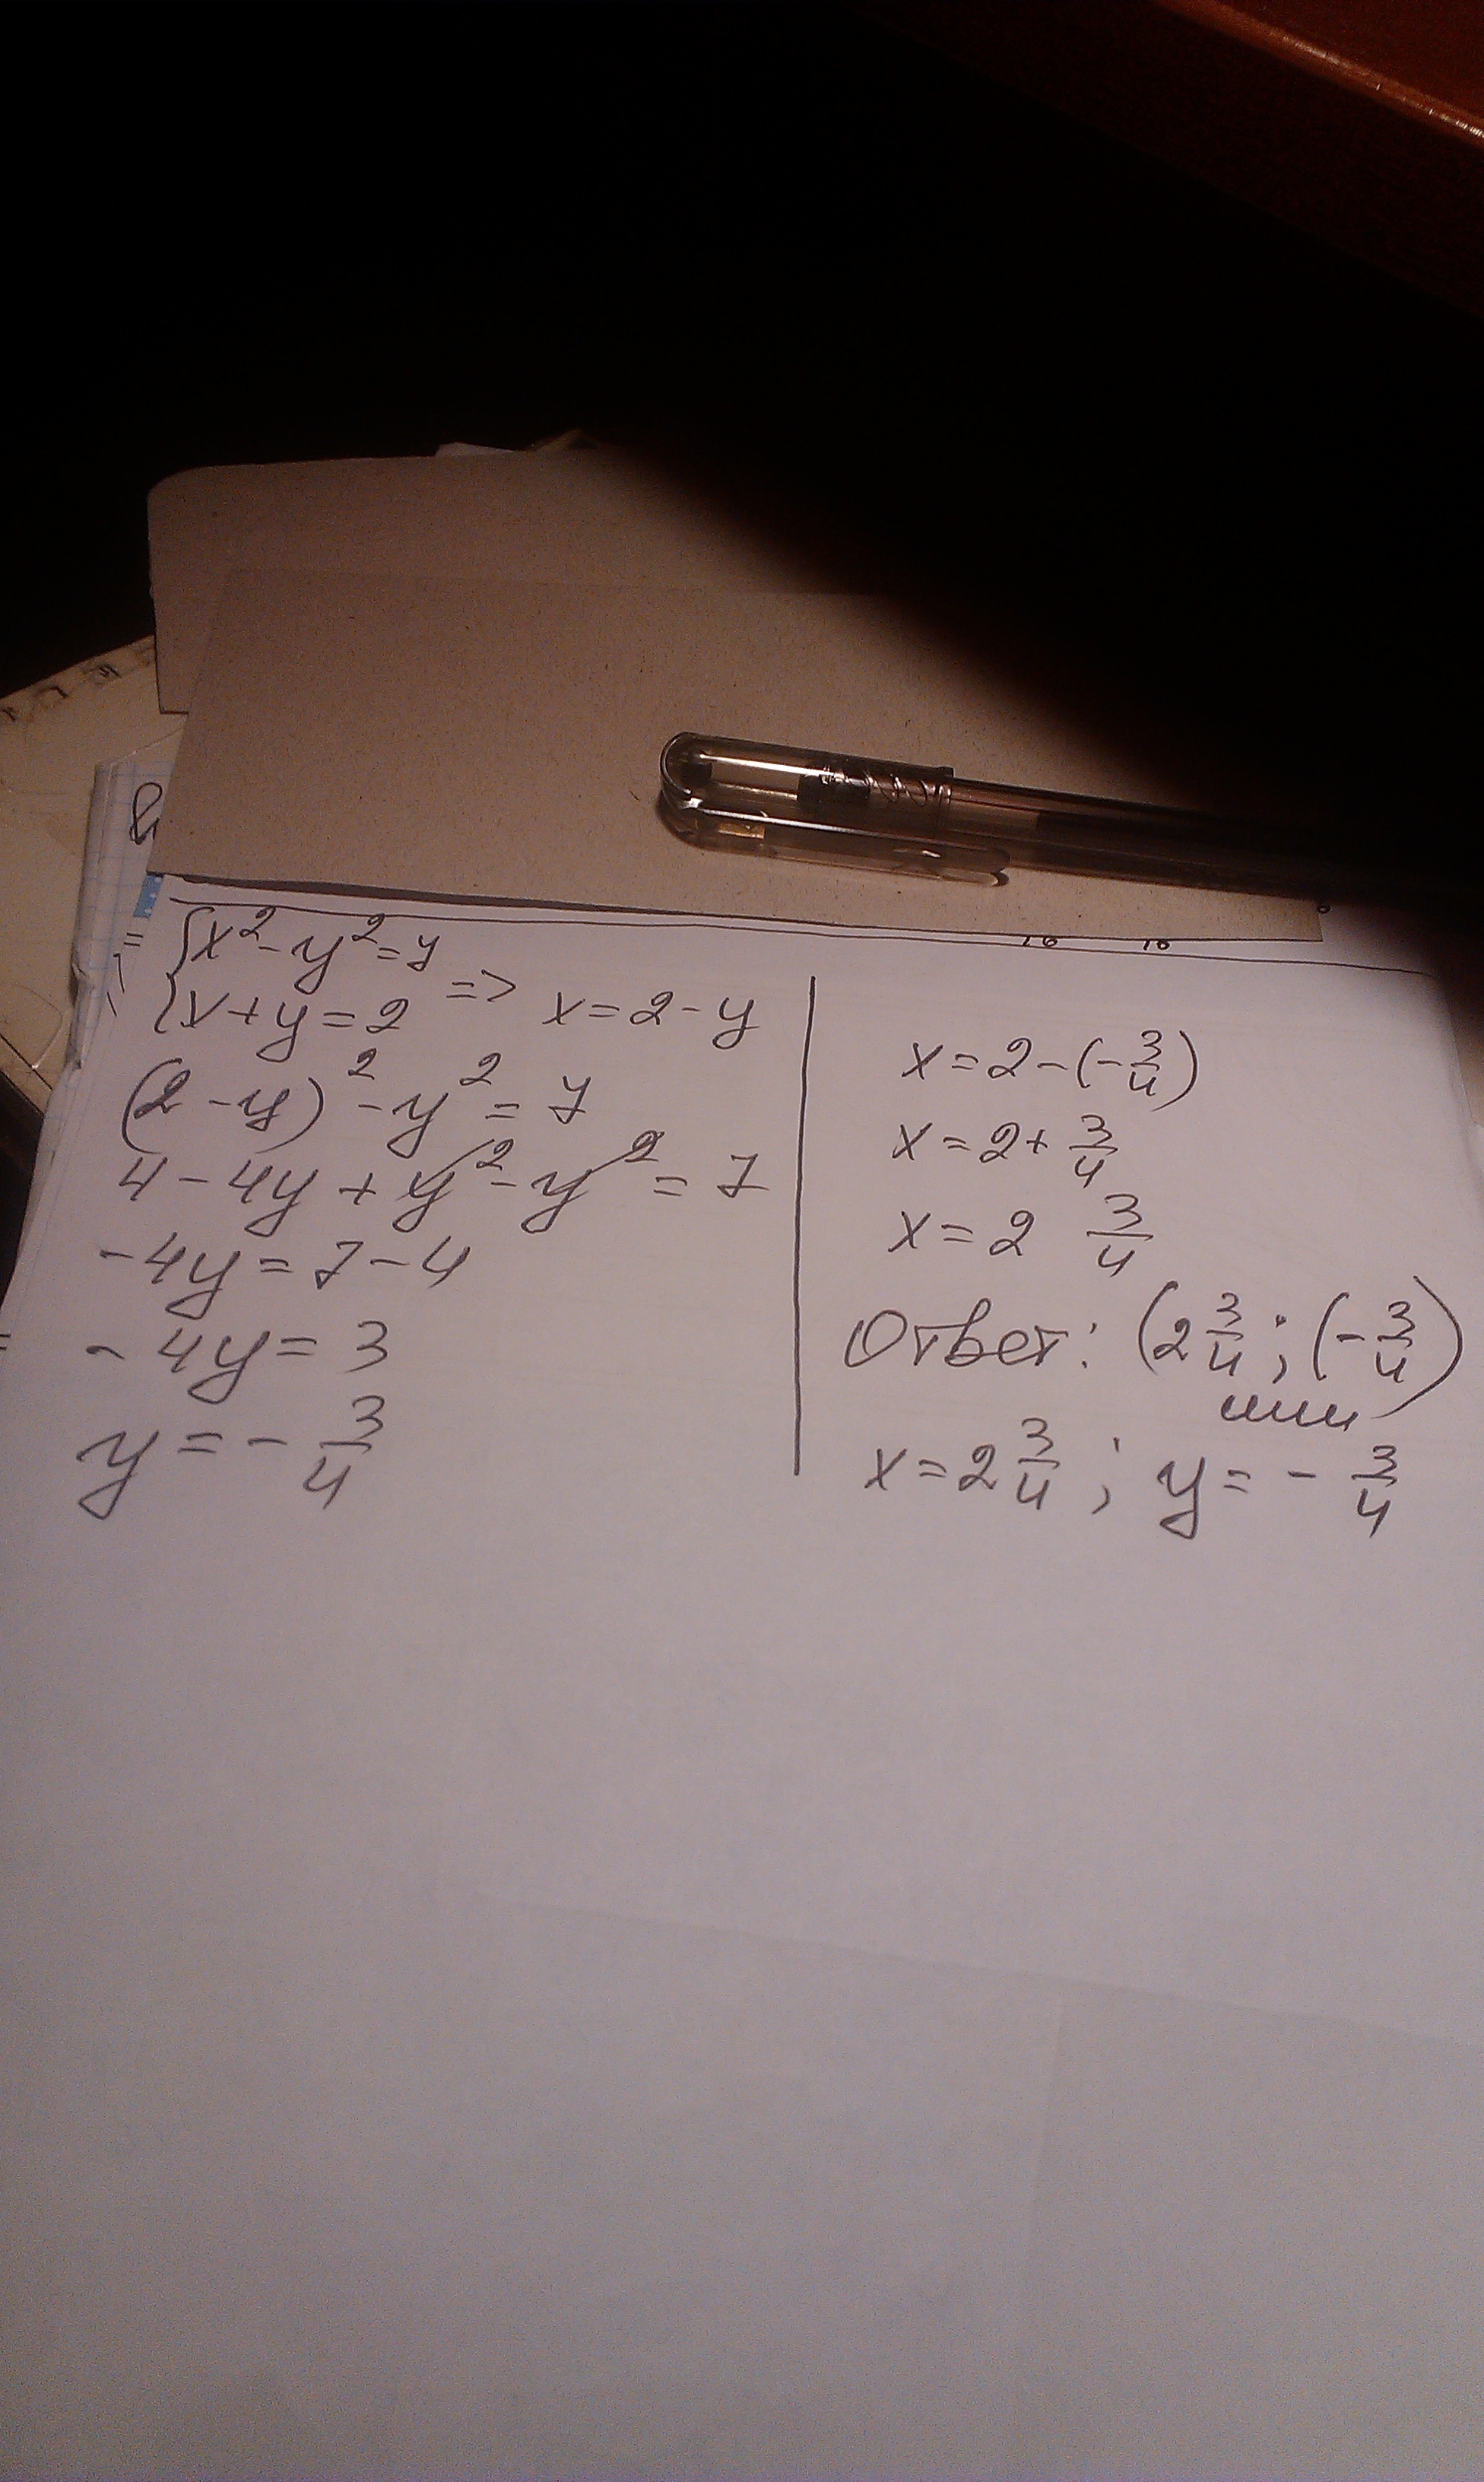 {x² - y² = 7
{x + y = 2 => x = 2 - y
(2 - y)² - y² = 7
4 - 4y + y² - y² = 7
-4y = 7 - 4
-4y = 3
y = - 3/4
x = 2 - (-3/4)
x = 2 + 3/4
x = 2 3/4
Ответ: (2 3/4; (-3/4)
или
x = 2 3/4; y = - 3/4